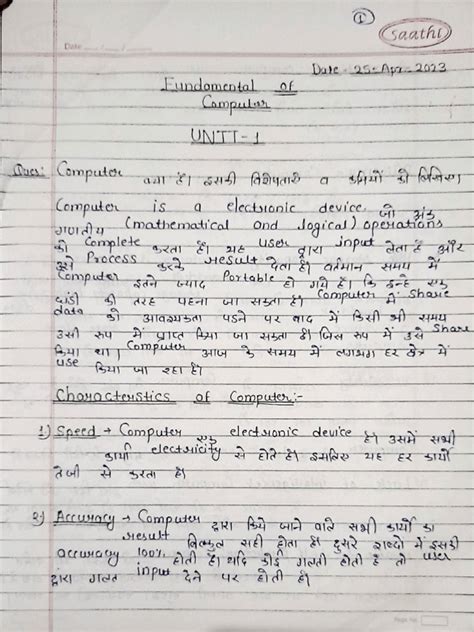 1
saathi
Date
Date - 25-Apr-2023
Fundamental of
Computer
UNIT-1
Ques: Computer क्या है। इसकी विशेषताऐं व कमियों को लिखिए।
Computer is a electronic device जो
गणतीय (mathematical and logical) operations
को Complete करता है। यह user द्वारा input लेता है और
उसे Process करके result देता है। वर्तमान समय में
Computer इतने ज्याद Portable हो गये है। कि इन्हे
की तरह पहना जा सकता है। Computer में Share
data को आवश्यकता पडने पर बाद में किसी भी समय
उसी रूप में प्राप्त किया जा सकता है। जिस रूप में उसे Share
किया था। Computer आज के समय में लगभग हर क्षेत्र में
use किया जा रहा है।
Characteristics of Computer:-
1) Speed → Computer एक electronic device है। उसमें सभी
कार्य electricity से होते है। इसलिए यह हर कार्य
तेजी से करता है।
2) Accuracy → Computer द्वारा किये जाने वाले सभी कार्यो का
result बिल्कुल सही होता है। दुसरे शब्दो में इसकी
accuracy 100% होती है। यदि कोई गलती होती है तो user
द्वारा गलत input देने पर होती है।
Page No.